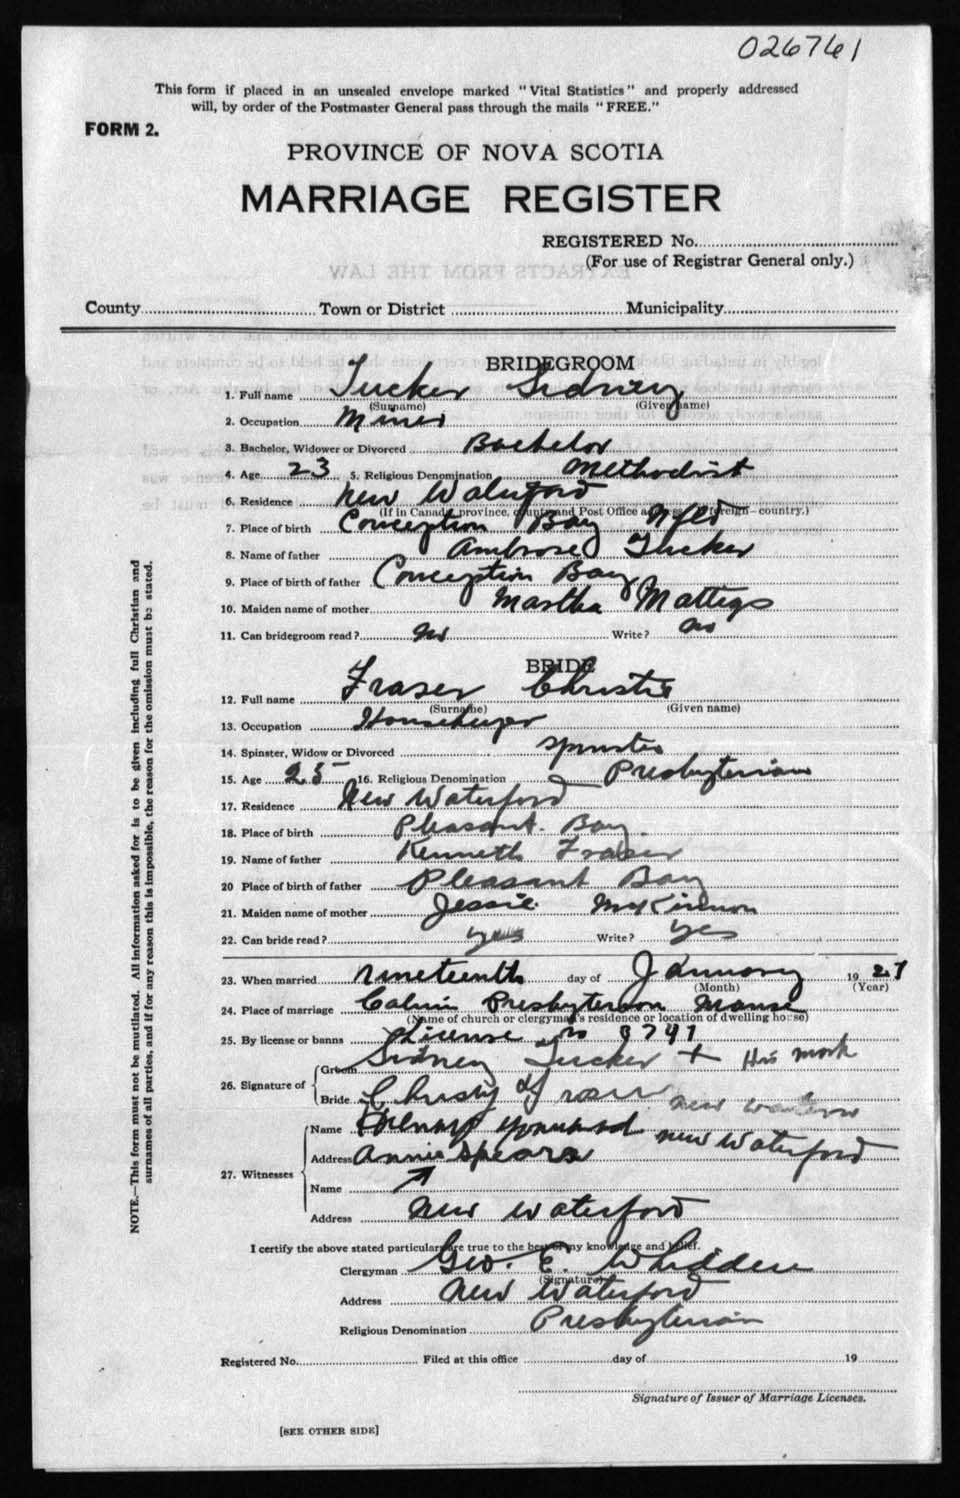 026761
This form if placed in an unsealed envelope marked "Vital Statistics" and properly addressed
will, by order of the Postmaster General pass through the mails "FREE."
FORM 2.
PROVINCE OF NOVA SCOTIA
MARRIAGE REGISTER
REGISTERED No.
(For use of Registrar General only.)
EXTRACTS FROM THE LAW
County Town or District Municipality
BRIDEGROOM
1. Full name Tucker Sidney
(Surname) (Given name)
2. Occupation Miner
3. Bachelor, Widower or Divorced Bachelor
4. Age 23 5. Religious Denomination Methodist
6. Residence New Waterford
(If in Canada, province, county and Post Office address; if foreign—country.)
7. Place of birth Conception Bay Nfld
8. Name of father Ambrose Tucker
9. Place of birth of father Conception Bay
10. Maiden name of mother Martha
11. Can bridegroom read? no Write? no
BRIDE
12. Full name Fraser Christie
(Surname) (Given name)
13. Occupation Housekeeper
14. Spinster, Widow or Divorced spinster
15. Age 25 16. Religious Denomination Presbyterian
17. Residence New Waterford
18. Place of birth Pleasant Bay
19. Name of father Kenneth Fraser
20 Place of birth of father Pleasant Bay
21. Maiden name of mother Jessie McKinnon
22. Can bride read? yes Write? yes
23. When married nineteenth day of January 1927
(Month) (Year)
24. Place of marriage Calvin Presbyterian Manse
(Name of church or clergyman's residence or location of dwelling house)
25. By license or banns License no 8747
26. Signature of Groom Sidney Tucker + His mark
Bride Christy Fraser New Waterford
27. Witnesses
Name New Waterford
Address Annie Spears
Name
Address New Waterford
I certify the above stated particulars are true to the best of my knowledge and belief.
Clergyman Geo. E. Whidden
(Signature)
Address New Waterford
Religious Denomination Presbyterian
Registered No. Filed at this office day of 19
Signature of Issuer of Marriage Licenses.
[SEE OTHER SIDE]
NOTE.—This form must not be mutilated. All information asked for is to be given including full Christian and
surnames of all parties, and if for any reason this is impossible, the reason for the omission must be stated.